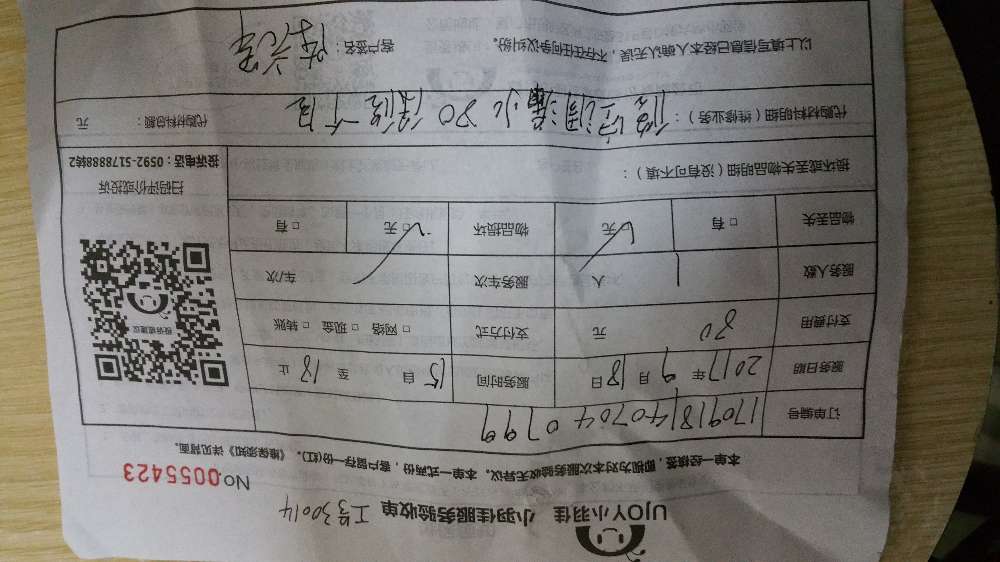 UJOY小羽佳 小羽佳服务验收单 工号30014
No 0055423
本单一经核签，即视为对本次服务验收无异议。本单一式两份，客户留存一份(红)。《维保须知》详见背面。
订单编号 170918140704 0799
服务日期 2017年9月18日 服务时间 15自 至18止
支付费用 80 元 支付方式 □ 网络 □ 现金 □ 转账
服务人数 1 人 服务车次 车/次
物品丢失 □ 有 □ 无 物品损坏 □ 无 □ 有
损坏或丢失物品明细（没有可不填）：
投诉或建议
扫码评价或投诉
投诉电话：0592-5178888转2
代购材料明细（维修业务）： 修空调漏水 80 保修一个月
代购材料日额： 元
以上填写信息已经本人确认无误，不存在任何争议纠纷。 客户签名：